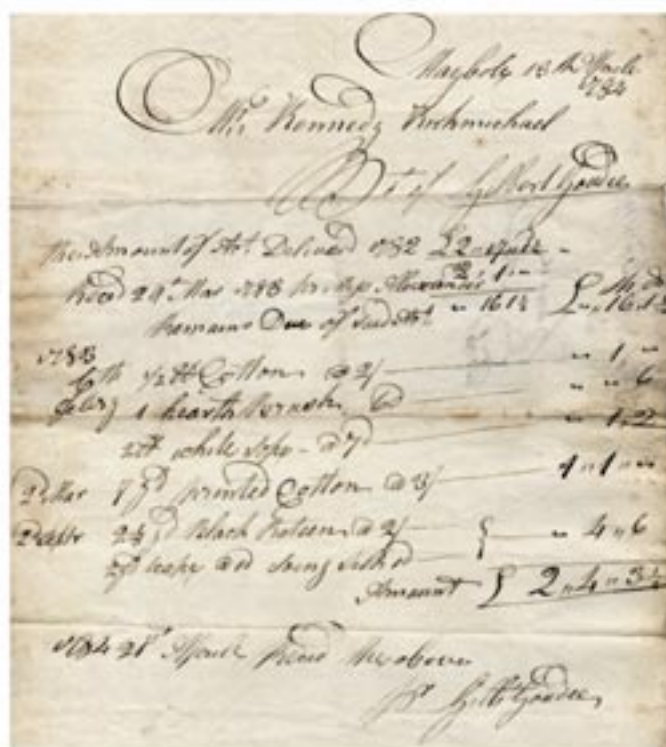 Maybole 13th Aprile
1784
Mr Kennedy Kirkmichael
Bot of Gilbert Goudie
The Amount of Act Delivered 1782 £2
Recd 29th Mar 1783 Alexander 2 " 1 " —
Remains Due of said Act " 16 1½ £ " 16 1½
1783
6th ½ lb Cotton @ 2/ " 1 "
Febry 1 hearth Brush " " 6
2 lb white sope @ 7d " 1 " 2
2d Mar 7 yd printed Cotton @ 3/ 1 " 1 " —
2½ yd Black @ 2/ " 4 " 6
2 yd tape
Amount £ 2 " 4 " 3½
1784 21st Aprile Recd the above
pr Gilbt Goudie